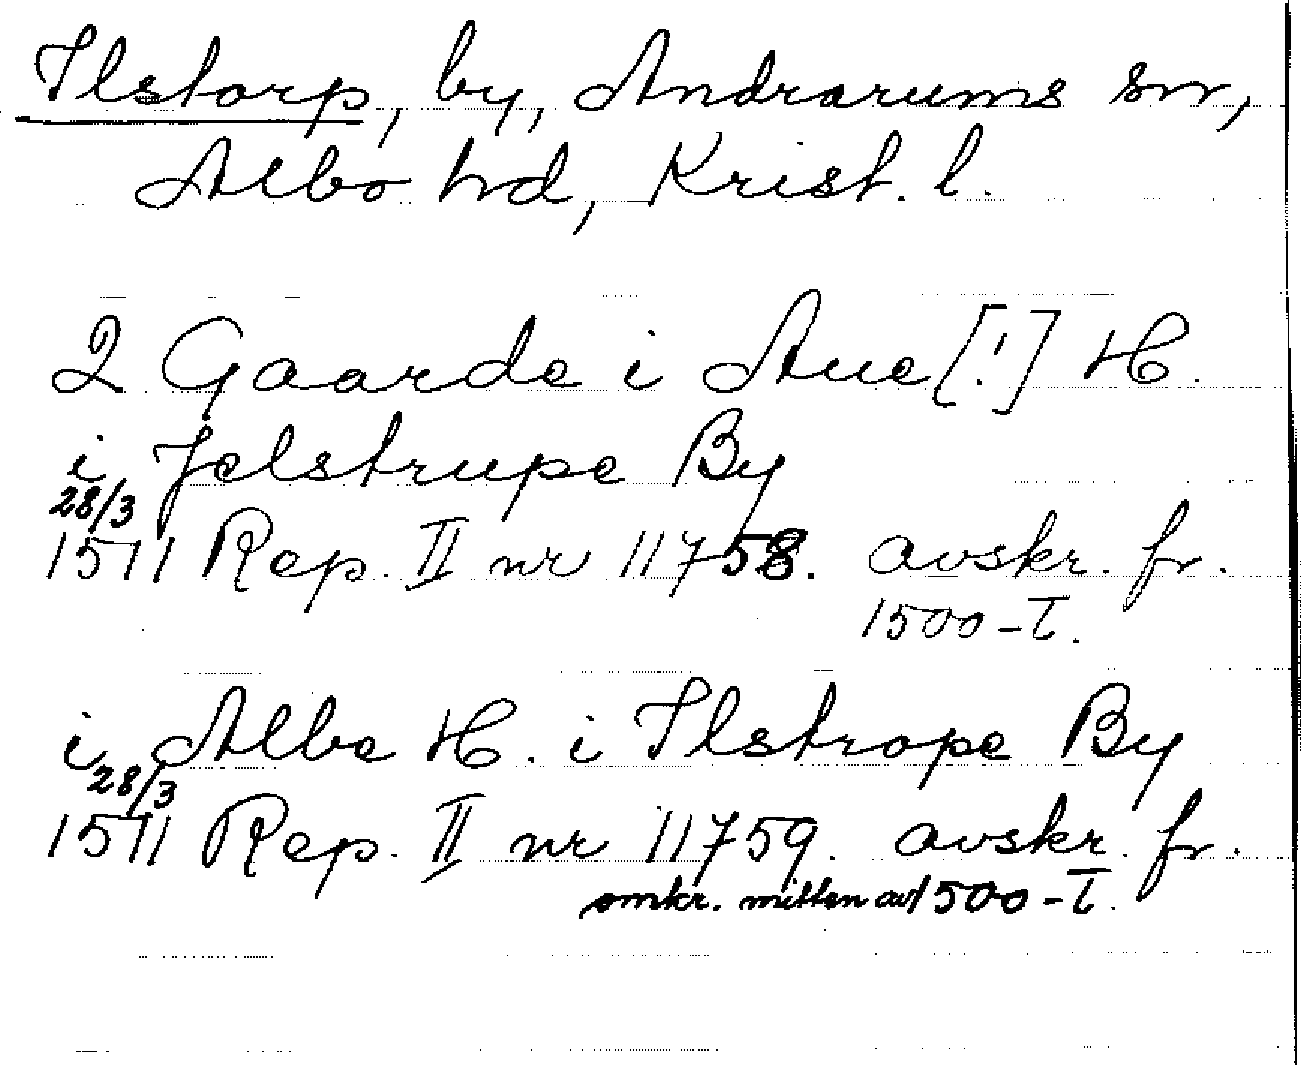 Ilstorp, by, Andrarums sn,
Albo hd, Krist. l.
2 Gaarde i Aue [!] H.
i Jelstrupe By
28/3
1511 Rep. II nr 11758. avskr. fr.
1500-T.
i Albe H. i Ilstrope By
28/3
1511 Rep. II nr 11759. avskr. fr.
omkr. mitten av 1500-T.